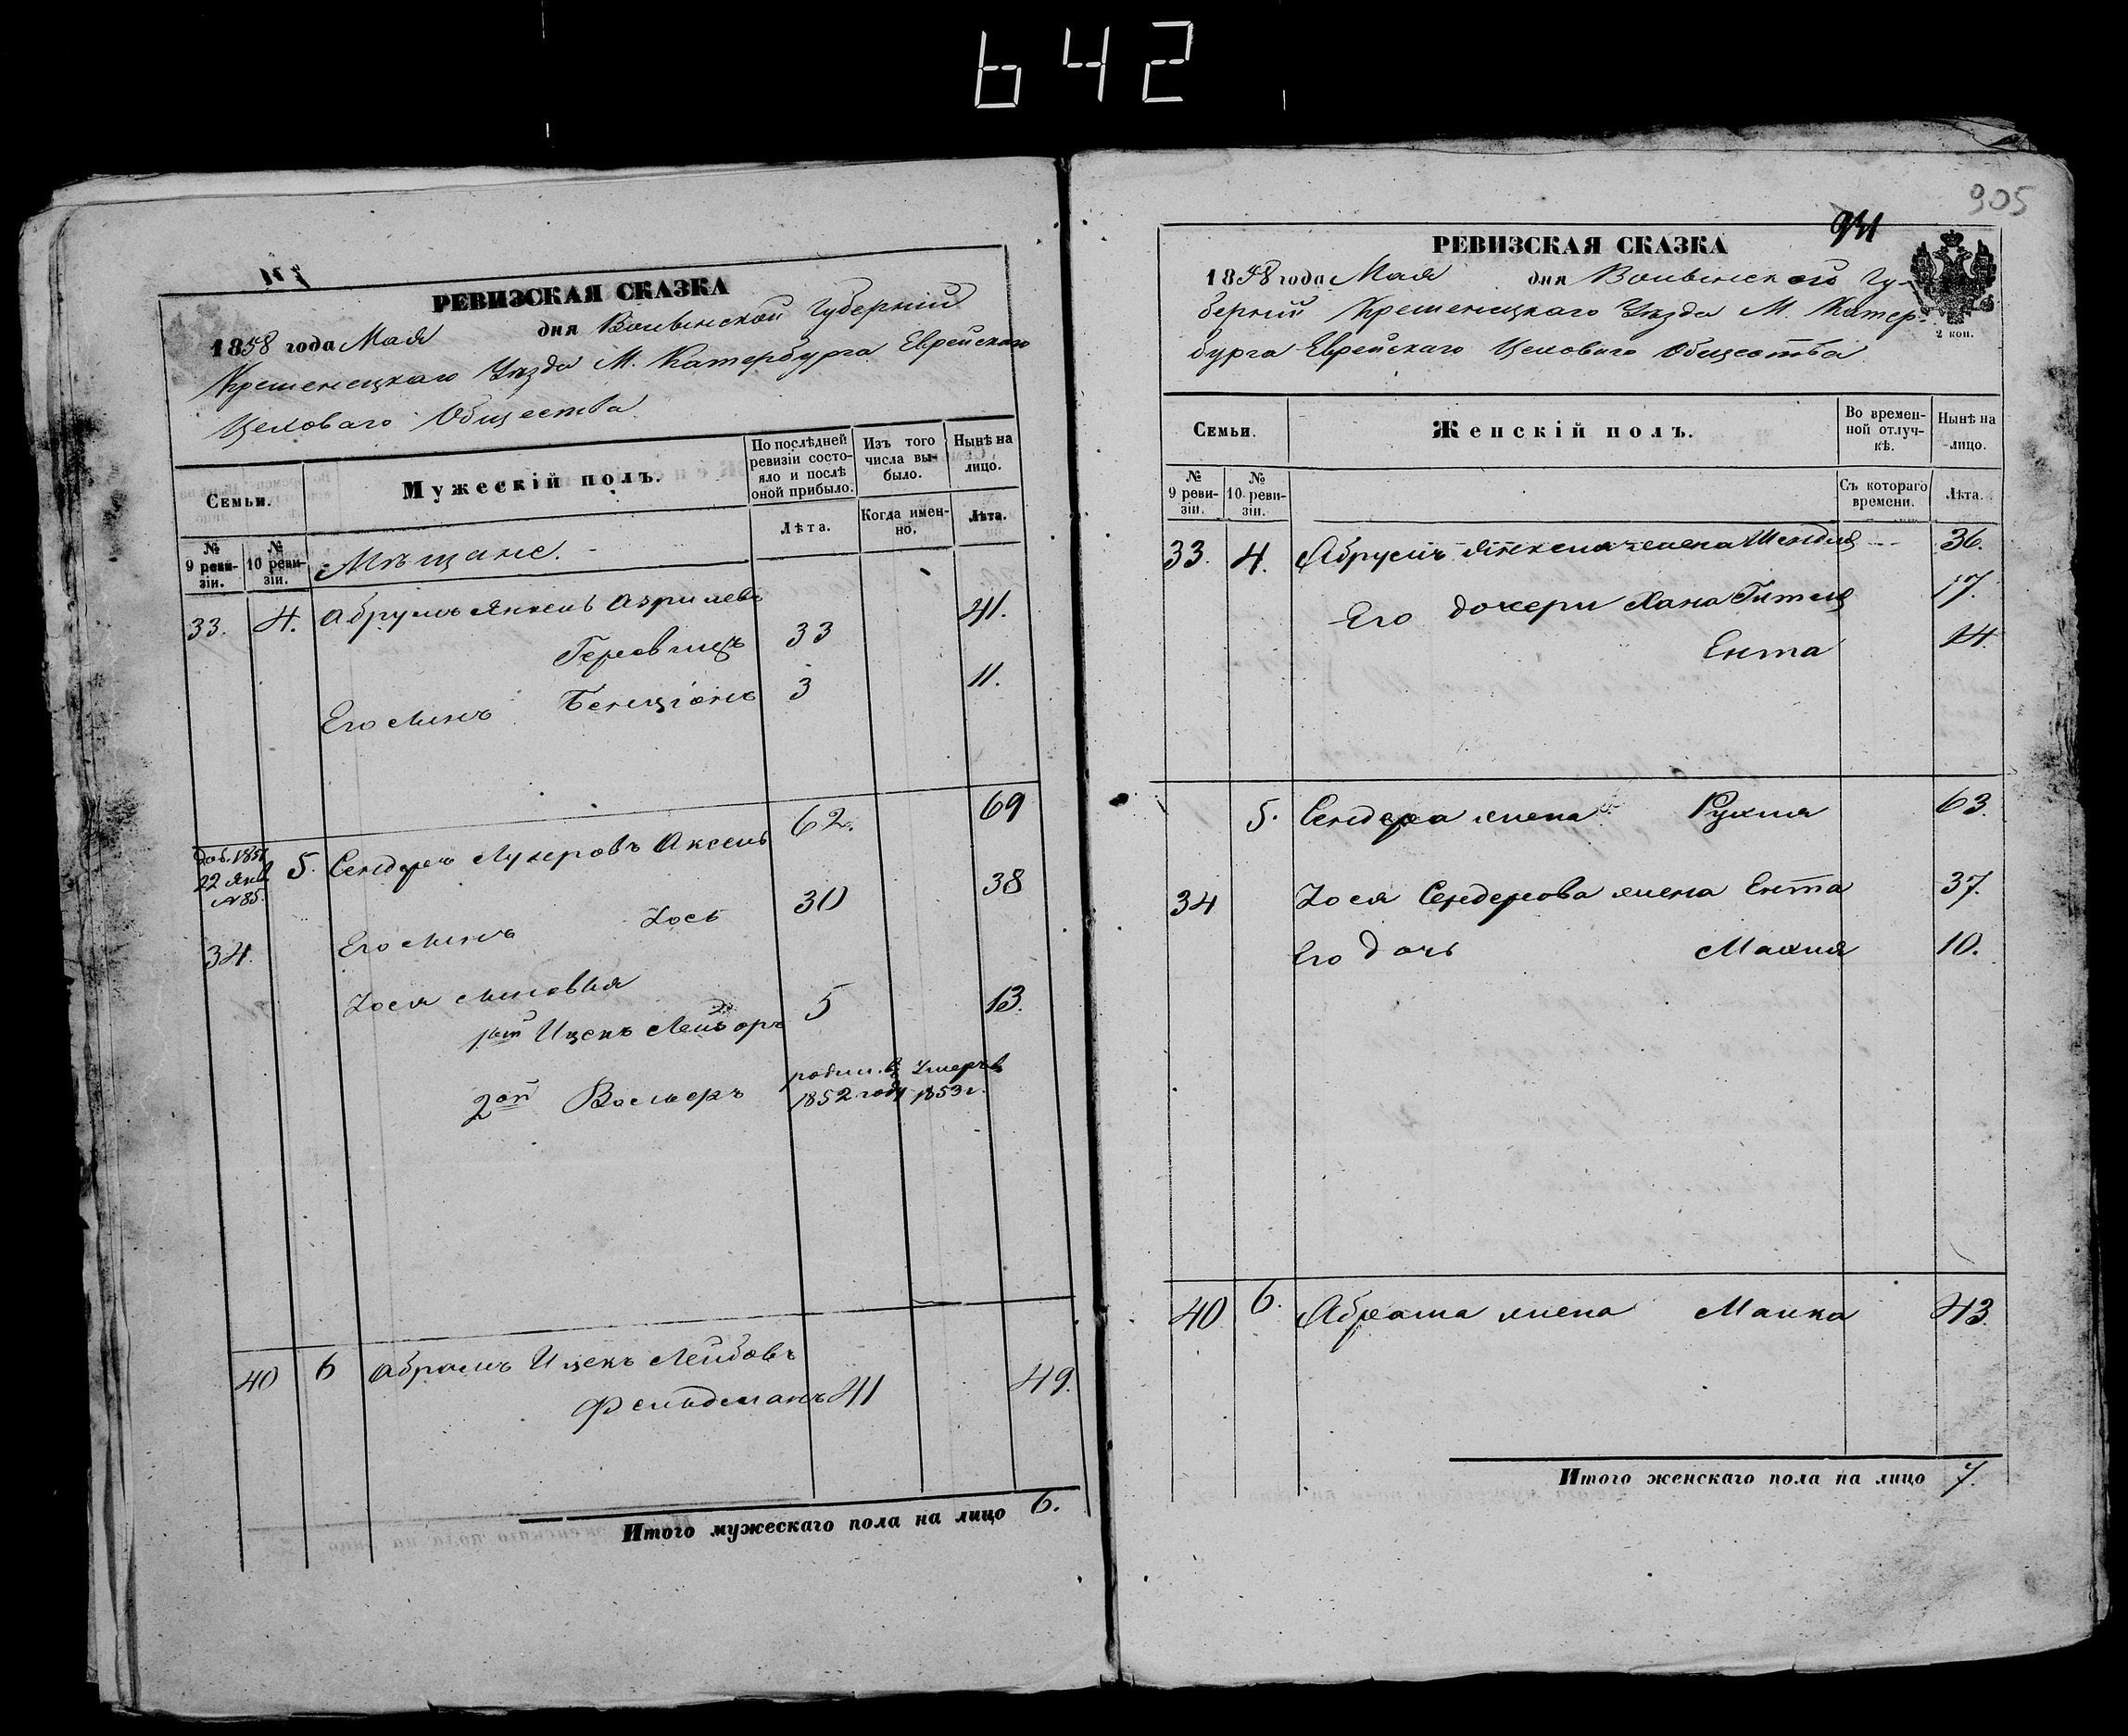 642
РЕВИЗСКАЯ СКАЗКА
1858 года Мая дня Волынской Губерніи
Кременецкаго Уѣзда М. Катербурга Еврейскаго
Цеховаго Общества
Семьи.
Мужескій полъ.
По послѣдней ревизіи состояло и послѣ оной прибыло.
Изъ того числа выбыло.
Нынѣ на лицо.
№ 9 ревизіи.
№ 10 ревизіи.
Мѣщане.
Лѣта.
Когда именно.
Лѣта.
33. 4. Абрумъ Янкель Азрилевъ
Героовицъ 33 41.
Его сынъ Бенціонъ 3 11.
доб. 1851
22 Янв
№85.
5. Сендеръ Лузеровъ Аксель 62. 69
34. Его сынъ Іось 30 38
Іося сыновья
1ый Ицекъ Лейзоръ 5 13.
2ой Вольеръ родил. въ 1852 году Умеръ въ 1853 г.
40 6 Абрамъ Ицекъ Лейбовъ
Фельдманъ 41 49.
Итого мужескаго пола на лицо 6.
905
931
РЕВИЗСКАЯ СКАЗКА
1858 года Мая дня Волынской Гу-
берніи Кременецкаго Уѣзда М. Катер-
бурга Еврейскаго Цеховаго Общества
2 коп.
Семьи.
Женскій полъ.
Во временной отлучкѣ.
Нынѣ на лицо.
№ 9 ревизіи.
№ 10 ревизіи.
Съ котораго времени.
Лѣта.
33. 4. Абрумъ Янкеля жена Шейндля 36.
Его дочери Хана Гитля 17.
Ента 14.
5. Сендера жена Рухля 63.
34 Іося Сендерова жена Ента 37.
Его дочь Махля 10.
40 6. Абрама жена Малка 43.
Итого женскаго пола на лицо 7.